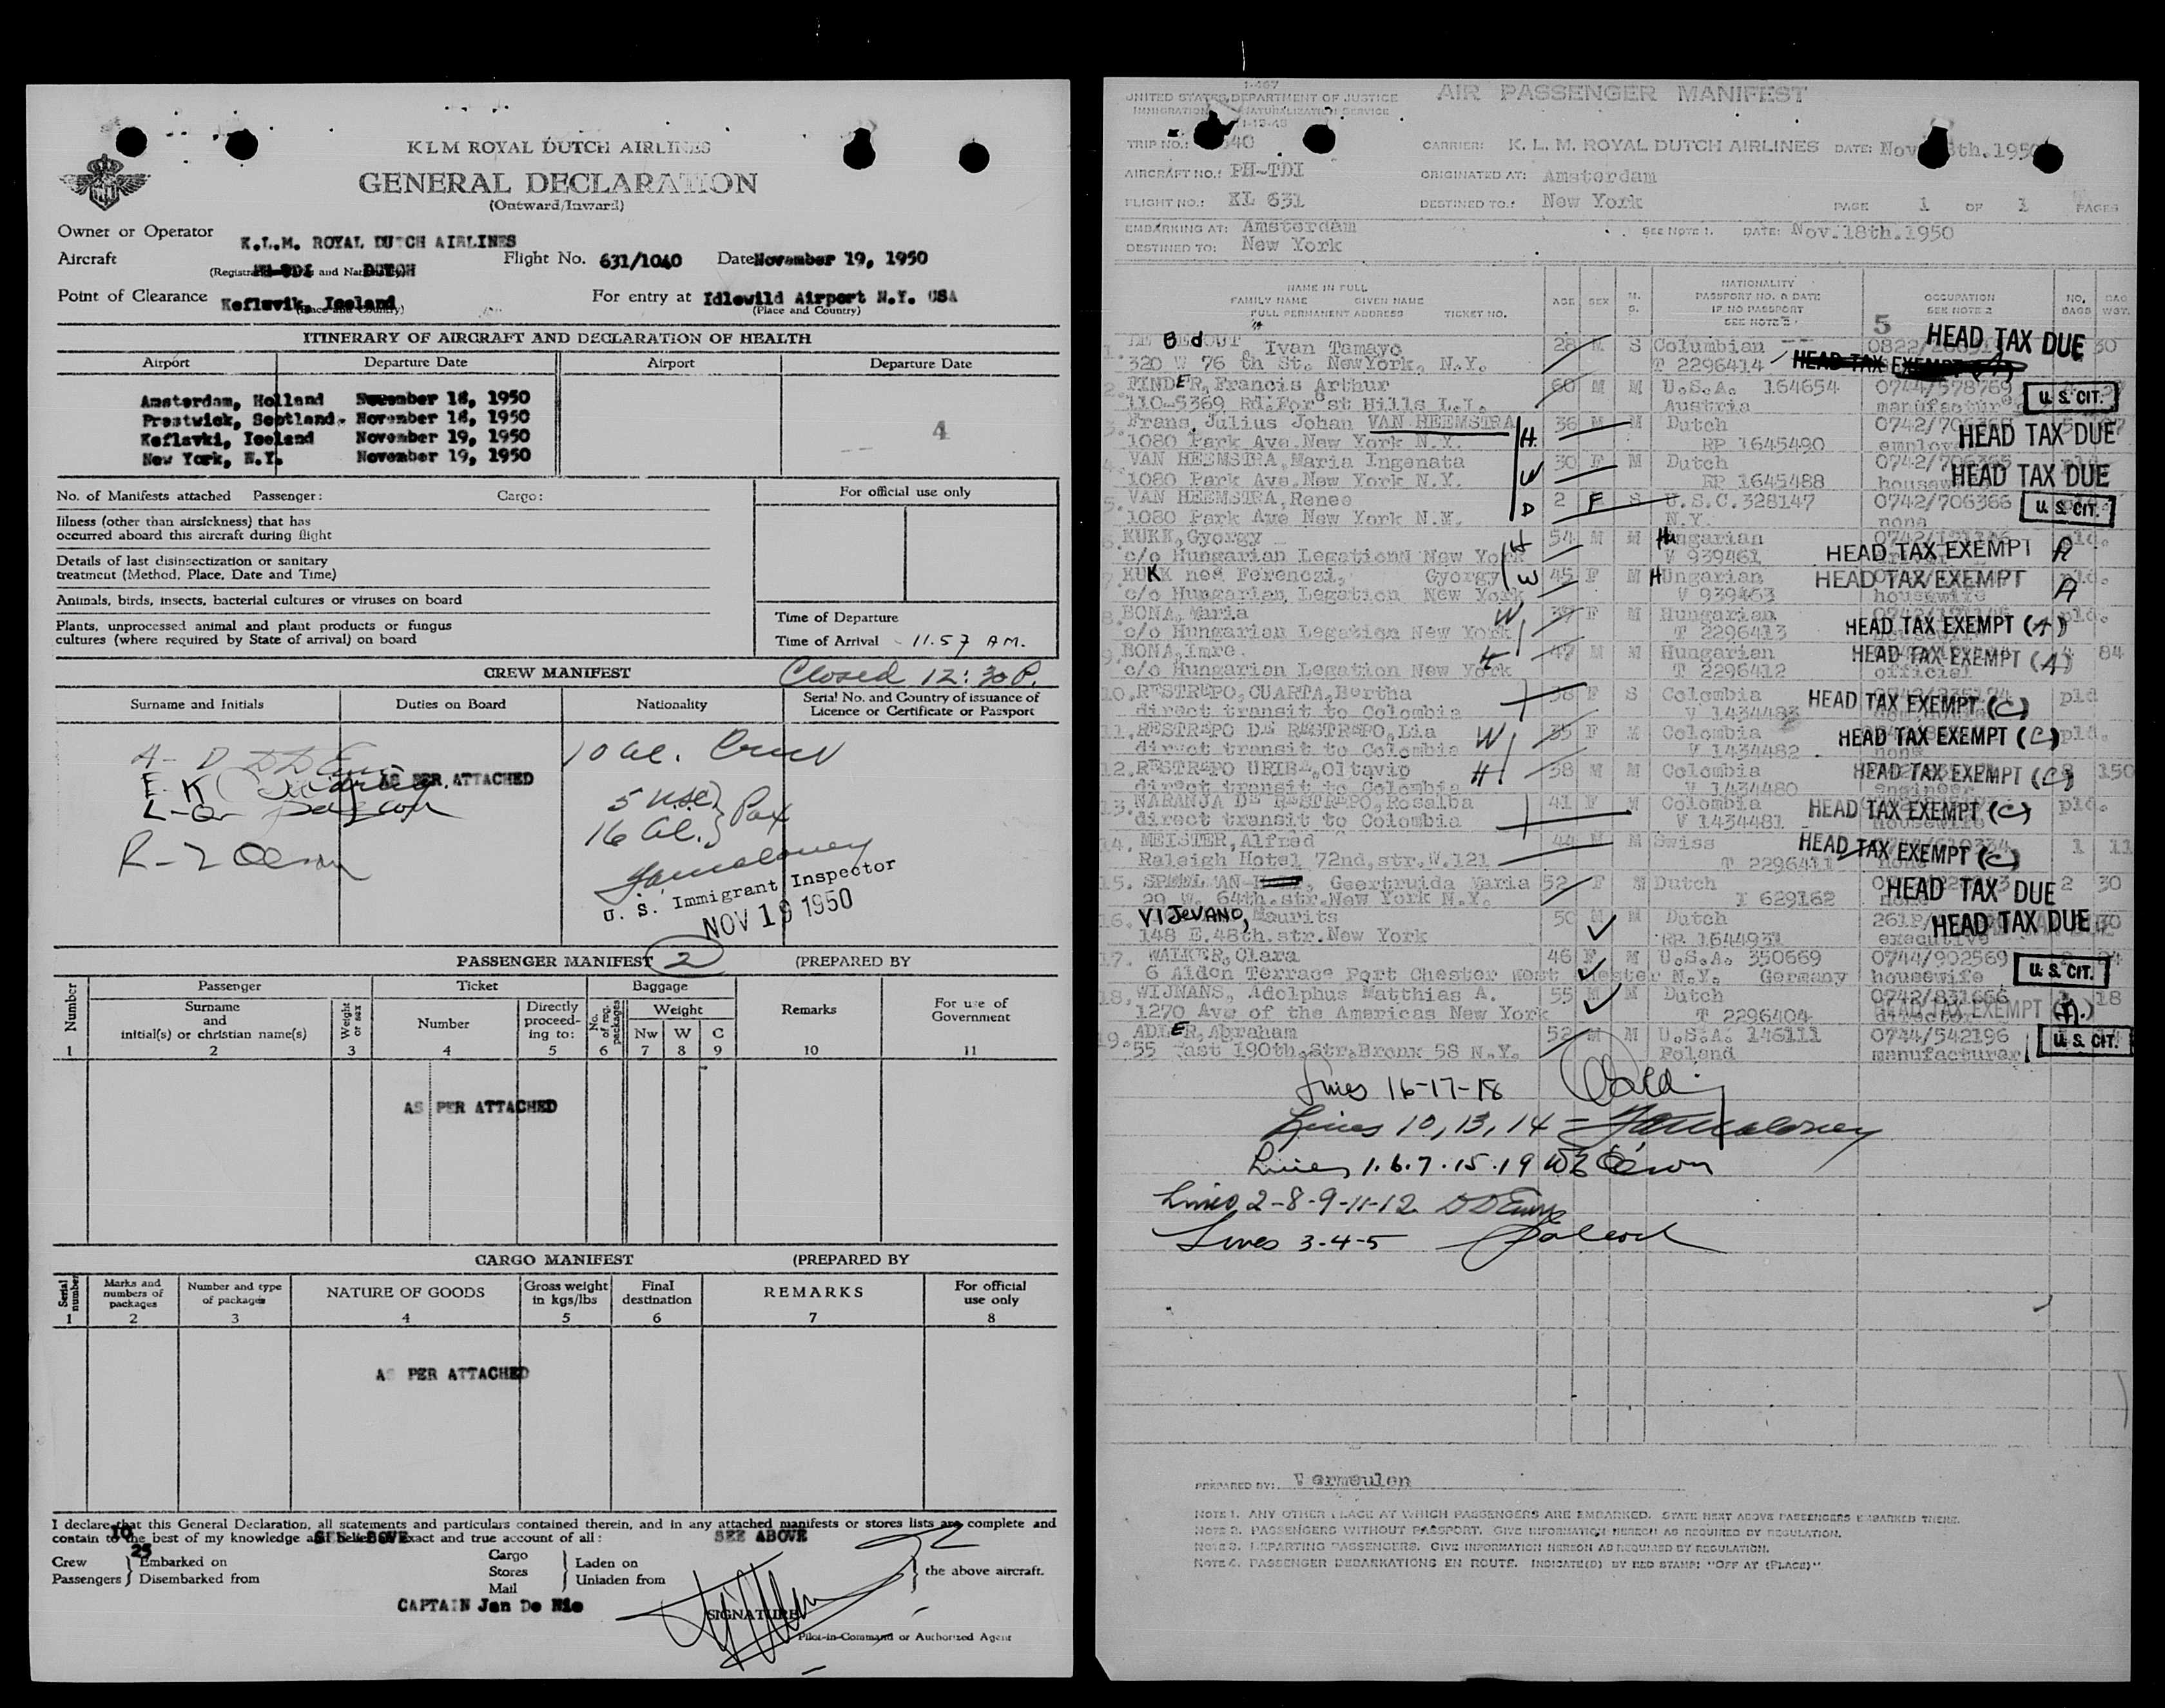 KLM ROYAL DUTCH AIRLINES
GENERAL DECLARATION
(Outward/Inward)
Owner or Operator K.L.M. ROYAL DUTCH AIRLINES
Aircraft DUTCH Flight No. 631/1040 Date November 19, 1950
Point of Clearance Keflavik, Iceland For entry at Idlewild Airport N.Y. USA
(Place and Country) (Place and Country)
ITINERARY OF AIRCRAFT AND DECLARATION OF HEALTH
Airport Departure Date Airport Departure Date
Amsterdam, Holland November 18, 1950
Prestwick, Scotland- November 18, 1950
Keflavki, Iceland November 19, 1950
New York, N.Y. November 19, 1950
4
No. of Manifests attached Passenger: Cargo:
For official use only
Illness (other than airsickness) that has
occurred aboard this aircraft during flight
Details of last disinsectization or sanitary
treatment (Method, Place, Date and Time)
Animals, birds, insects, bacterial cultures or viruses on board
Plants, unprocessed animal and plant products or fungus
cultures (where required by State of arrival) on board
Time of Departure
Time of Arrival 11.57 AM.
CREW MANIFEST Closed 12:30 P.
Surname and Initials Duties on Board Nationality Serial No. and Country of issuance of
Licence or Certificate or Passport
AS PER ATTACHED
10 al. Crew
5 USC
16 al. } Pax
R-Z Olson
U. S. Immigrant Inspector
NOV 19 1950
PASSENGER MANIFEST 2 (PREPARED BY
Number Passenger Ticket Baggage Remarks For use of
Government
Surname
and
initial(s) or christian name(s) Weight or sex Number Directly
proceed-
ing to: No. of reg. packages Weight
Nw W C
1 2 3 4 5 6 7 8 9 10 11
AS PER ATTACHED
CARGO MANIFEST (PREPARED BY
Serial number Marks and
numbers of
packages Number and type
of packages NATURE OF GOODS Gross weight
in kgs/lbs Final
destination REMARKS For official
use only
1 2 3 4 5 6 7 8
AS PER ATTACHED
I declare that this General Declaration, all statements and particulars contained therein, and in any attached manifests or stores lists are complete and
contain to the best of my knowledge and belief exact and true account of all:
10 SEE ABOVE SEE ABOVE
25
Crew
Passengers } Embarked on
Disembarked from Cargo
Stores
Mail } Laden on
Unladen from } the above aircraft.
CAPTAIN Jan De Nie
SIGNATURE
Pilot-in-Command or Authorized Agent
1-467
UNITED STATES DEPARTMENT OF JUSTICE
IMMIGRATION NATURALIZATION SERVICE
AIR PASSENGER MANIFEST
TRIP NO.: 40 CARRIER: K. L. M. ROYAL DUTCH AIRLINES DATE: Nov. 8th.1950
AIRCRAFT NO.: PH-TDI ORIGINATED AT: Amsterdam
FLIGHT NO.: KL 631 DESTINED TO.: New York PAGE 1 OF 1 PAGES
EMBARKING AT: Amsterdam SEE NOTE 1. DATE: Nov.18th.1950
DESTINED TO: New York
NAME IN FULL
FAMILY NAME GIVEN NAME
FULL PERMANENT ADDRESS TICKET NO. AGE SEX M. S. NATIONALITY
PASSPORT NO. & DATE
IF NO PASSPORT
SEE NOTE 2 OCCUPATION
SEE NOTE 2 NO. BAGS BAG WGT.
5
1. DE BEDOUT Ivan Tamayo 28 M S Columbian HEAD TAX DUE 30
320 W 76 th St. NewYork, N.Y. T 2296414
2. PINDER, Francis Arthur 60 M M U.S.A. 164654 0744/578769
110-5369 Rd.Forest Hills L.I. Austria U.S. CIT.
3. Frans Julius Johan VAN HEEMSTRA H 36 M M Dutch
1080 Park Ave.New York N.Y. RP 1645490 HEAD TAX DUE
4. VAN HEEMSTRA, Maria Ingenata W 30 F M Dutch 0742/706365
1080 Park Ave.New York N.Y. RP 1645488 HEAD TAX DUE
5. VAN HEEMSTRA, Renee D 2 F S U.S.C.328147 0742/706366
1080 Park Ave New York N.Y. N.Y. none U.S. CIT.
6. KUKK, Gyorgy H 54 M M Hungarian pld.
c/o Hungarian Legation New York V 939461 HEAD TAX EXEMPT A
7. KUKK neé Ferenczi, Gyorgy W 45 F M Hungarian HEAD TAX EXEMPT pld.
c/o Hungarian Legation New York V 939463 housewife A
8. BONA, Maria W 37 F M Hungarian pld.
c/o Hungarian Legation New York T 2296413 HEAD TAX EXEMPT (A)
9. BONA, Imre. H 47 M M Hungarian HEAD TAX EXEMPT (A) 84
c/o Hungarian Legation New York T 2296412 official
10. RESTREPO, CUARTA, Bertha 38 F S Colombia HEAD TAX EXEMPT (C) pld
direct transit to Colombia V 1434483
11. RESTREPO DE RESTREPO, Lia W 35 F M Colombia HEAD TAX EXEMPT (C) pld.
direct transit to Colombia V 1434482 none
12. RESTREPO URIBE, Oltavio H 38 M M Colombia HEAD TAX EXEMPT (C) 150
direct transit to Colombia V 1434480 engineer
13. NARANJA DE RESTREPO, Rosalba 41 F M Colombia HEAD TAX EXEMPT (C) pld.
direct transit to Colombia V 1434481 housewife
14. MEISTER, Alfred 44 M M Swiss HEAD TAX EXEMPT (C) 1 11
Raleigh Hotel 72nd,str,W.121 T 2296411 none
15. SPEELMAN, Geertruida Maria 52 F M Dutch HEAD TAX DUE 2 30
29 W. 64th.str.New York N.Y. T 629162
16. VIJEVANO, Maurits 50 M M Dutch HEAD TAX DUE 30
148 E.48th.str.New York RP 1644931 executive
17. WALKER, Clara 46 F M U.S.A. 350669 0744/902569
6 Aldon Terrace Port Chester West Chester N.Y. Germany housewife U.S. CIT.
18. WIJNANS, Adolphus Matthias A. 55 M M Dutch 0742/831666 18
1270 Ave of the Americas New York T 2296404 HEAD TAX EXEMPT
19. ADLER, Abraham 52 M M U.S.A. 146111 0744/542196
55 East 190th.Str.Bronx 58 N.Y. Poland manufacturer U.S. CIT.
Lines 16-17-18
Lines 10, 13, 14 =
Lines 1.6.7.15.19 Olson
Lines 2-8-9-11-12
Lines 3-4-5
PREPARED BY: Vermeulen
NOTE 1. ANY OTHER PLACE AT WHICH PASSENGERS ARE EMBARKED. STATE NEXT ABOVE PASSENGERS EMBARKED THERE.
NOTE 2. PASSENGERS WITHOUT PASSPORT. GIVE INFORMATION HEREON AS REQUIRED BY REGULATION.
NOTE 3. DEPARTING PASSENGERS. GIVE INFORMATION HEREON AS REQUIRED BY REGULATION.
NOTE 4. PASSENGER DEBARKATIONS EN ROUTE. INDICATE(D) BY RED STAMP: "OFF AT (PLACE)"